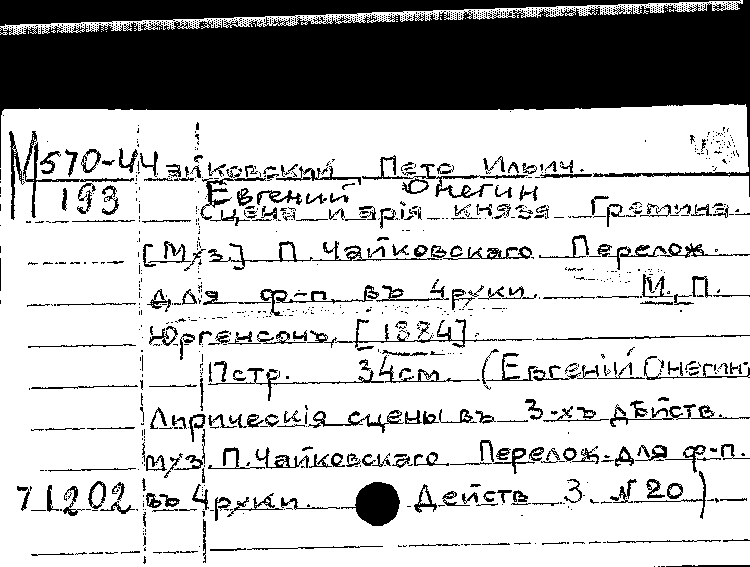 М 570-4 Чайковский Петр Ильич.
193 Евгений Онегин
Сцена и арія князя Гремина.
[Муз] П. Чайковскаго. Перелож.
для ф-п. въ 4 руки. М., П.
Юргенсонъ, [1884].
17 стр. 34 см. (Евгеній Онегин;
Лирическія сцены въ 3-хъ дѣйств.
муз. П. Чайковскаго. Перелож. для ф-п.
71202 въ 4 руки. Действ 3. №20).